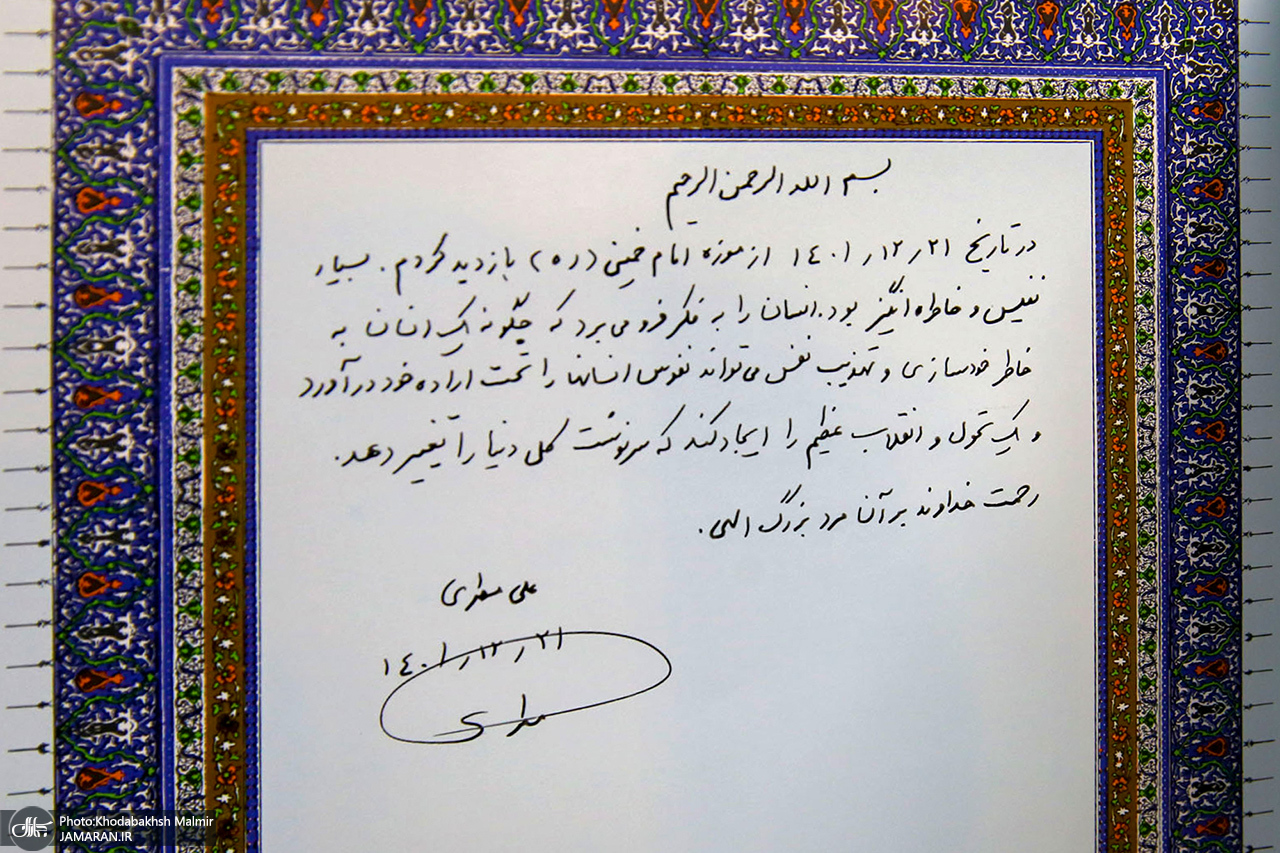 بسم الله الرحمن الرحیم
در تاریخ ۲۱ر۱۲ر۱۴۰۱ از موزه امام خمینی (ره) بازدید کردم. بسیار
نفیس و خاطره انگیز بود. انسان را به فکر فرو می برد که چگونه یک انسان به
خاطر خودسازی و تهذیب نفس می تواند نفوس انسانها را تحت اراده خود درآورد
و یک تحول و انقلاب عظیم را ایجاد کند که سرنوشت کلی دنیا را تغییر دهد.
رحمت خداوند بر آن مرد بزرگ الهی.
علی مطهری
۲۱ر۱۲ر۱۴۰۱
Photo:Khodabakhsh Malmir
JAMARAN.IR